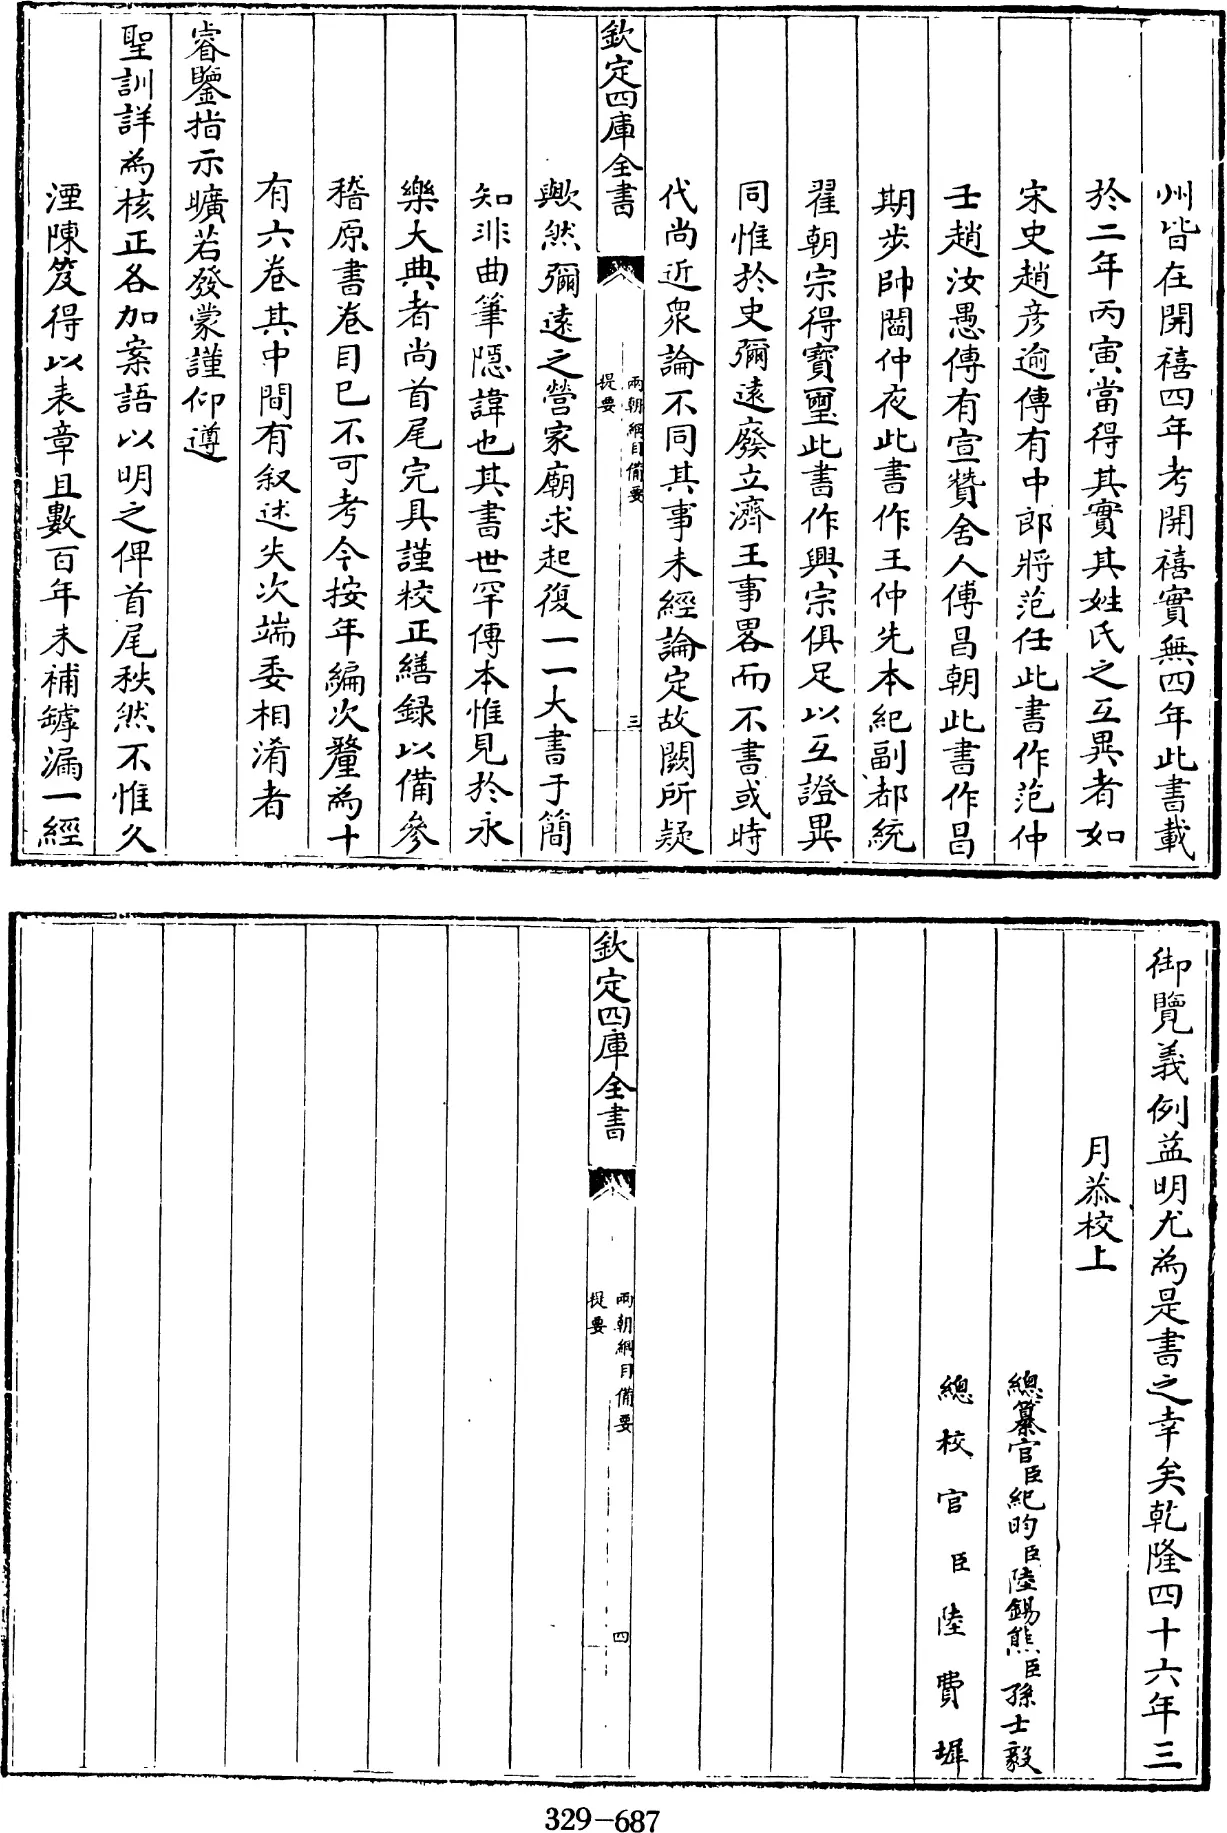 州皆在開禧四年考開禧實無四年此書載
於二年丙寅當得其實其姓氏之互異者如
宋史趙彦逾傳有中郎將范任此書作范仲
壬趙汝愚傳有宣贊舍人傅昌朝此書作昌
期步帥閻仲夜此書作王仲先本紀副都統
翟朝宗得寳璽此書作興宗俱足以互證異
同惟於史彌遠廢立濟王事畧而不書或時
代尚近衆論不同其事未經論定故闕所疑
欽定四庫全書
兩朝綱目備要
提要
三
歟然彌遠之營家廟求起復一一大書于簡
知非曲筆隠諱也其書世罕傳本惟見於永
樂大典者尚首尾完具謹校正繕録以備參
稽原書卷目已不可考今按年編次釐為十
有六卷其中間有叙述失次端委相淆者
睿鑒指示曠若發蒙謹仰遵
聖訓詳為核正各加案語以明之俾首尾秩然不惟久
湮陳笈得以表章且數百年未補罅漏一經
御覽義例益明尤為是書之幸矣乾隆四十六年三
月恭校上
總纂官臣紀昀臣陸錫熊臣孫士毅
總校官臣陸費墀
欽定四庫全書
兩朝綱目備要
提要
四
329-687